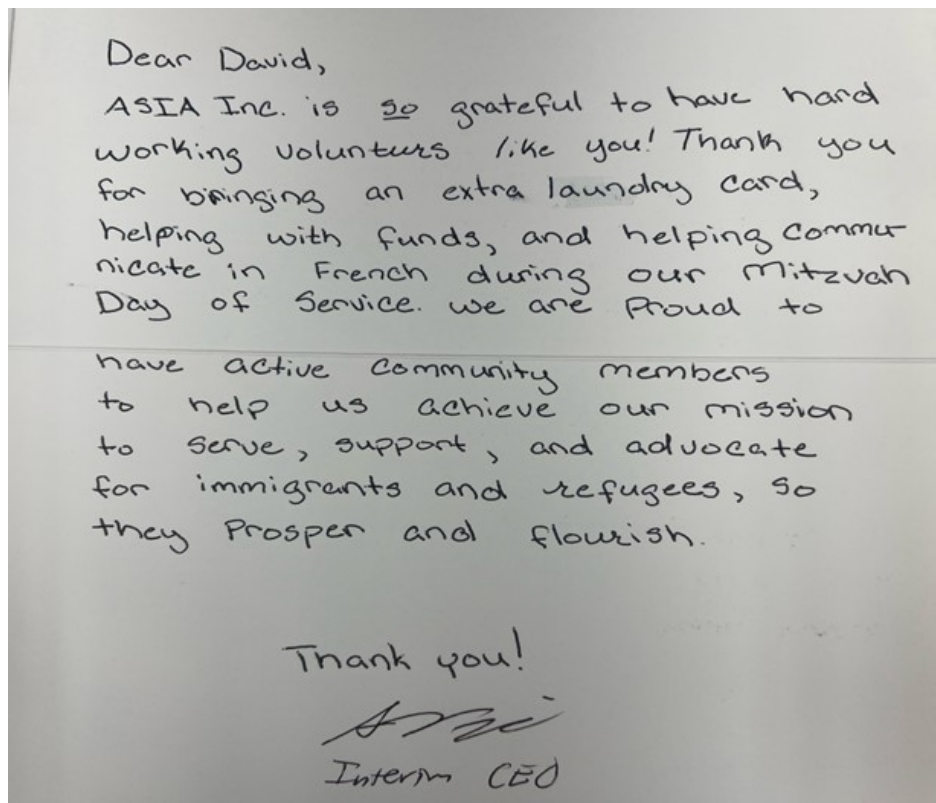 Dear David,
ASIA Inc. is so grateful to have hard
working volunteers like you! Thank you
for bringing an extra laundry card,
helping with funds, and helping commu-
nicate in French during our Mitzvah
Day of Service. we are proud to
have active community members
to help us achieve our mission
to serve, support, and advocate
for immigrants and refugees, so
they prosper and flourish.
Thank you!
Interim CEO